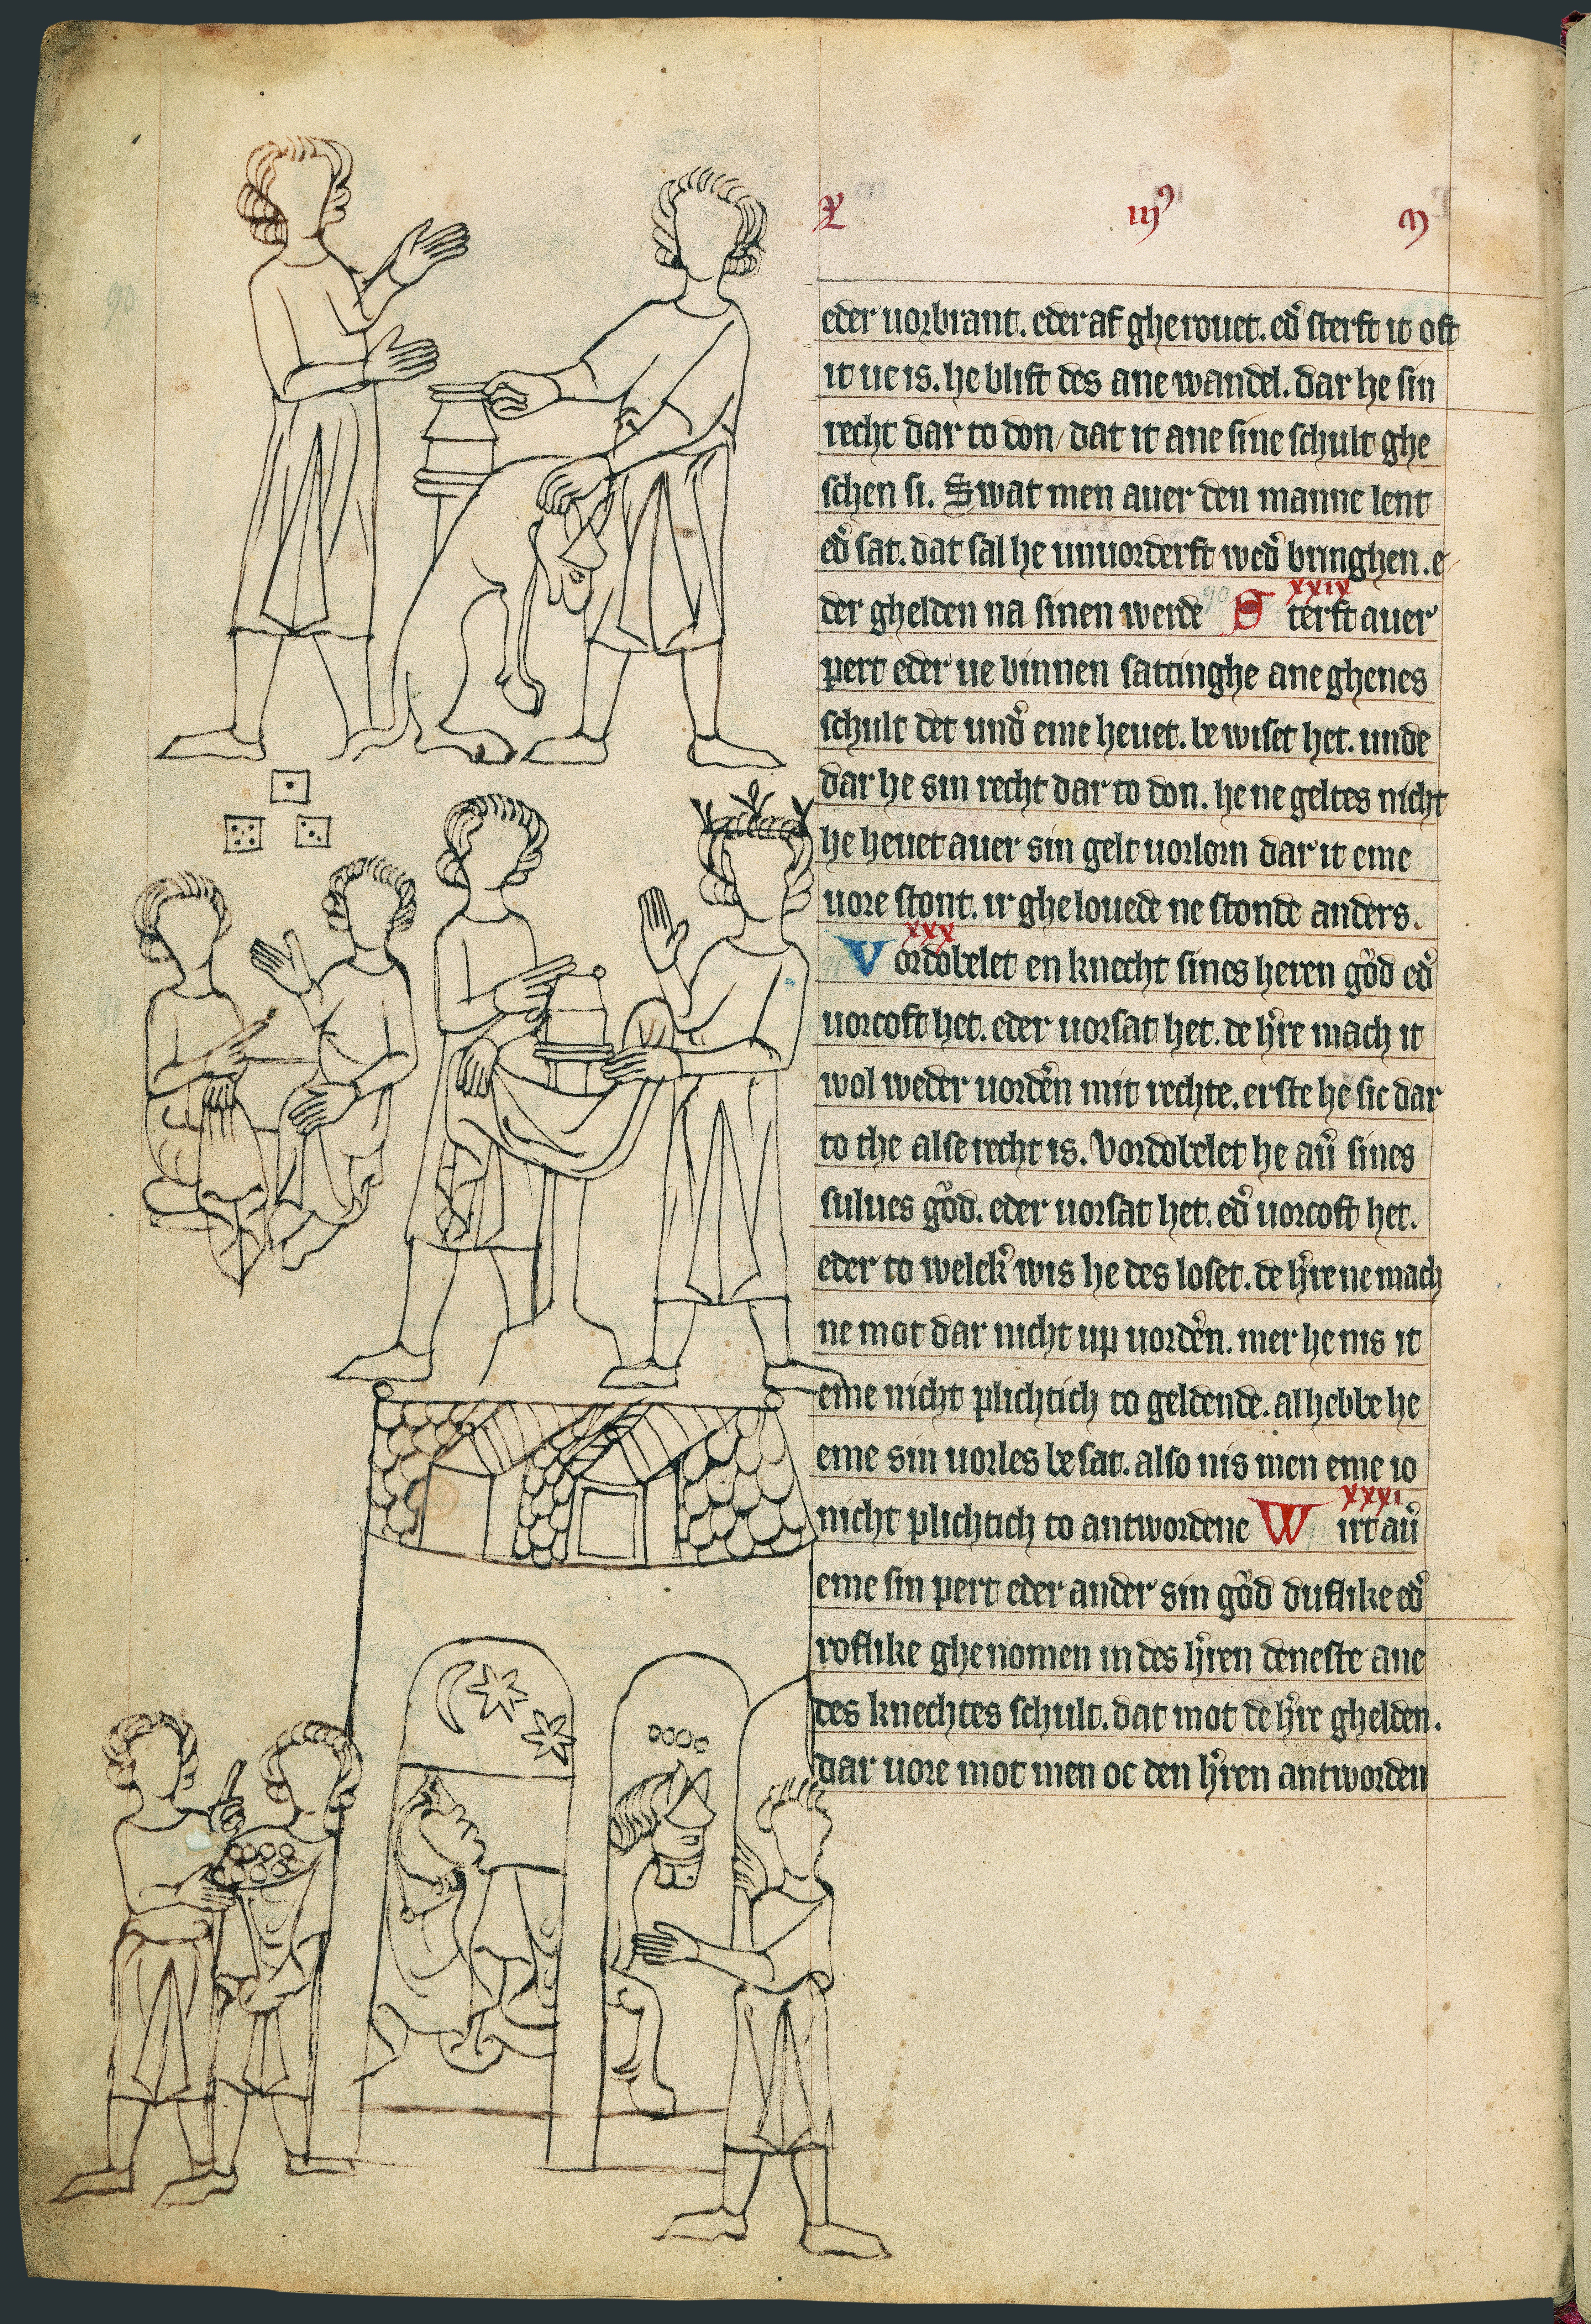 L iijꝰ m
eder uorbrant. eder af gherouet. ed̓ sterft it oft
it ue is. he blift des ane wandel. dar he sin
recht dar to don / dat it ane sine schult ghe
schen si. Swat men auer den manne lent
ed̓ sat. dat sal he unuorderft wed̓ bringhen. e
der ghelden na sinen werde 90 S xxix terft auer
pert eder ue binnen sattinghe ane ghenes
schult det und̓ eme heuet. be wiset het. unde
dar he sin recht dar to don. he ne geltes nicht
he heuet auer sin gelt uorlorn dar it eme
uore stont. ir ghelouede ne stonde anders.
91 V xxx ordobelet en knecht sines heren gǒd ed̓
uorcoft het. eder uorsat het. de h̓re mach it
wol weder uord̓en mit rechte. erste he sic dar
to the alse recht is. Vordobelet he au̓ sines
sulues gǒd. eder uorsat het. ed̓ uorcoft het.
eder to welck̓ wis he des loset. de h̓re ne mach
ne mot dar nicht up uord̓en. mer he nis it
eme nicht plichtich to geldende. al hebbe he
eme sin uorles besat. also nis men eme io
nicht plichtich to antwordene W 92 xxxi irt au̓
eme sin pert eder ander sin gǒd duflike ed̓
roflike ghenomen in des h̓ren deneste ane
des knechtes schult. dat mot de h̓re ghelden.
dar uore mot men oc den h̓ren antworden
90
91
92